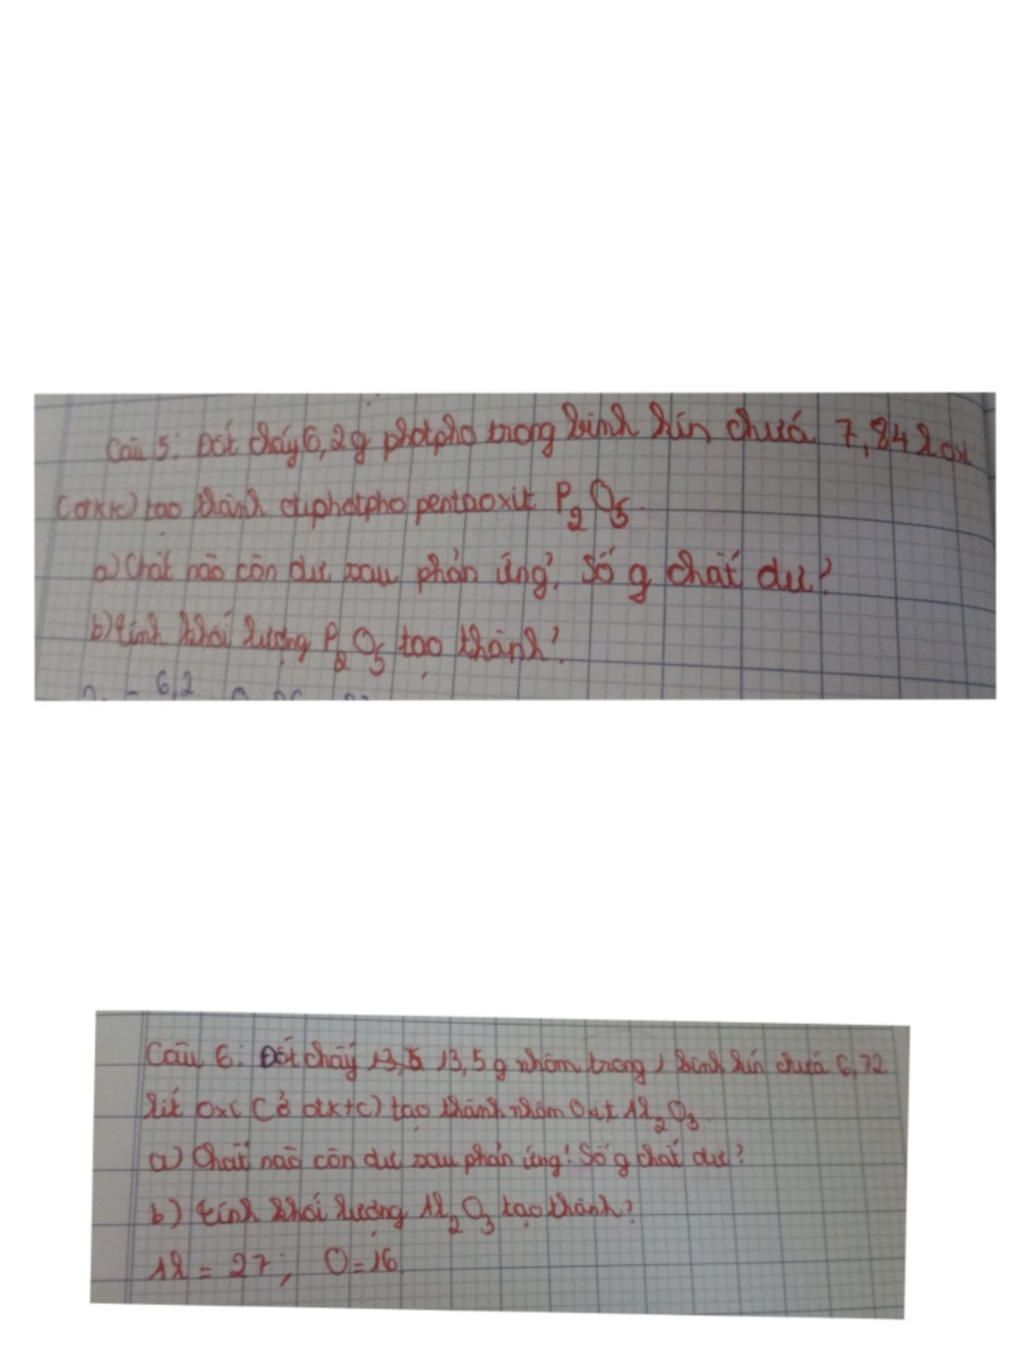 Câu 5: Đốt cháy 6,2g photpho trong bình kín chứa 7,84 l oxi
(đktc) tạo thành điphotpho pentaoxit P2O5.
a) Chất nào còn dư sau phản ứng, số g chất dư?
b) tính khối lượng P2O5 tạo thành?
6,2
Câu 6: Đốt cháy 13,5 g nhôm trong 1 bình kín chứa 6,72
lít oxi (ở đktc) tạo thành nhôm oxit Al2O3.
a) Chất nào còn dư sau phản ứng? Số g chất dư?
b) tính khối lượng Al2O3 tạo thành?
Al = 27; O = 16.